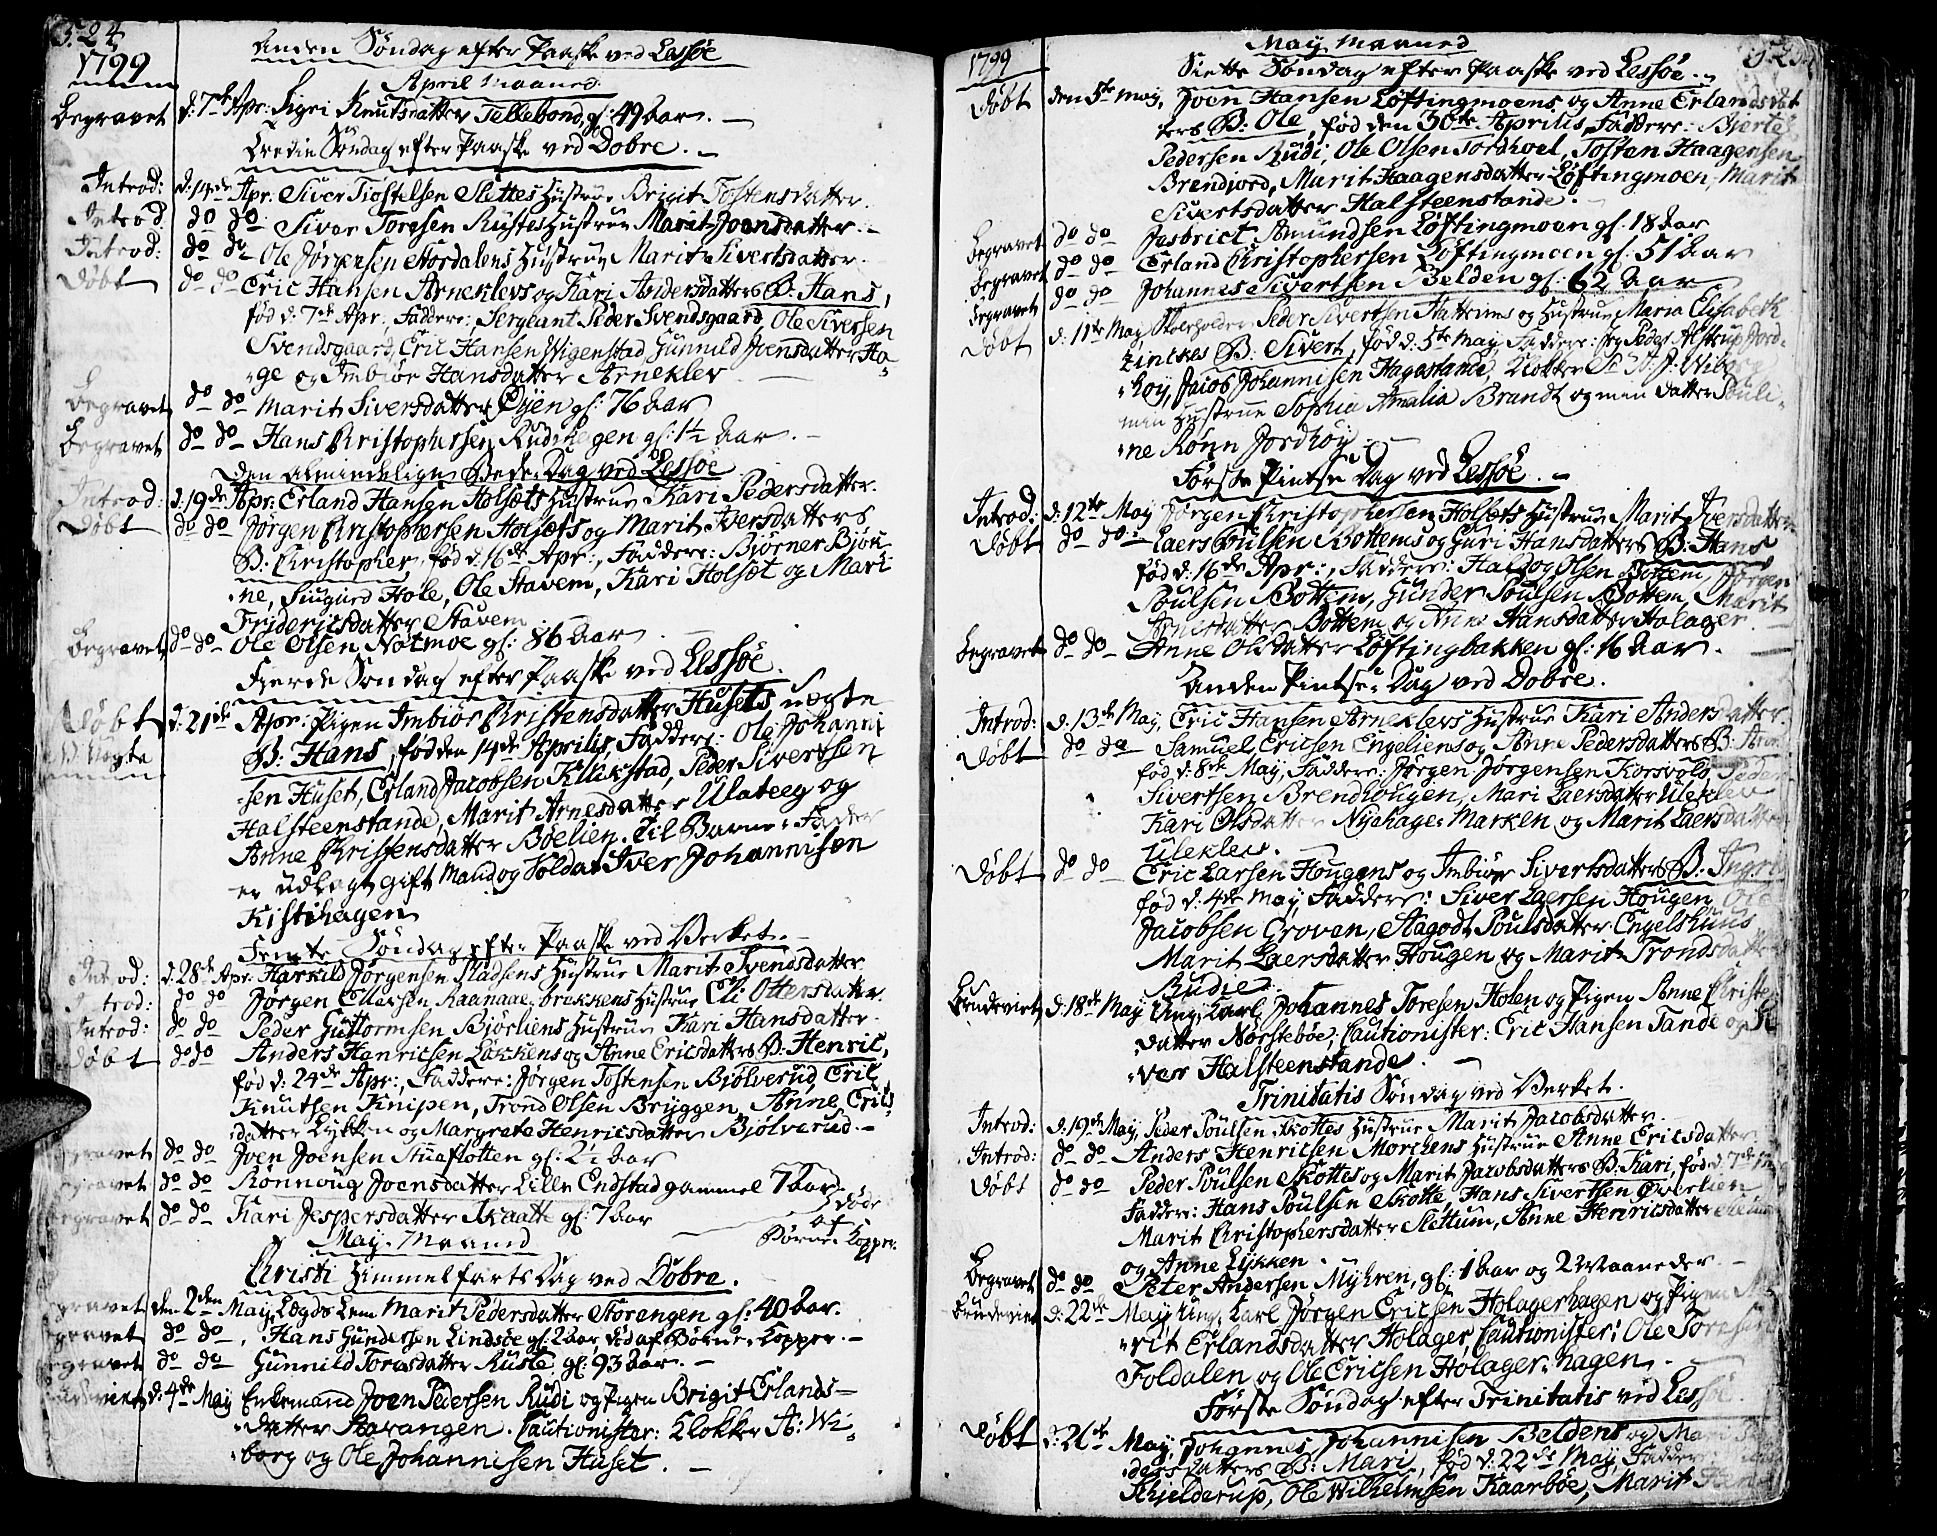 524
1799
Anden Søndag efter Paaske ved Lessøe
April Maaned
Begravet d: 7de Apr: Sigri Knutsdatter Tellebond, gl: 49 Aar. —
Tredie Søndag efter Paaske ved Dobre. —
Introd: d: 14de Apr: Siver Tiostelsen Slettes Hustrue Brigit Tostensdatter.
Introd do do Siver Toresen Rustes Hustrue Marit Joensdatter. —
Introd: do do Ole Jørgensen Stordalens Hustrue Marit Sivertsdatter.
Døbt do do Eric Hansen Arneklevs og Kari Andersdatters B: Hans,
fød d: 7de Apr: Faddere: Sergeant Peder Svendsgaard, Ole Siversen
Svendsgaard, Eric Hansen Wigenstad Gunnild Joensdatter Ha-
-ge og Imbiør Hansdatter Arneklev
Begravet do do Marit Siversdatter Øyen gl: 76 Aar
Begravet do do Hans Christophersen Rudihagen gl: 1½ Aar. —
Den almindelige Bede-Dag ved Lessøe
Introd: d: 19de Apr: Erland Hansen Holsets Hustrue Kari Pedersdatter.
Døbt do do Jørgen Christophersen Holsets og Marit Iversdatters
B: Christopher, fød d: 16de Apr:, Faddere: Bjørner Bjøk-
-ne, Siugurd Hole, Ole Stavem, Kari Holset og Mari
Fridericsdatter Stavem
Begravet do do Ole Olsen Notmoe gl: 86 Aar
Fierde Søndag efter Paaske ved Lessøe.
Døbt d: 21de Apr: Pigen Imbiør Christensdatter Husets uægte
Uægte B: Hans, fød den 14de Aprilis, Faddere: Ole Johanni
-sen Huset, Erland Jacobsen Klukstad, Peder Sivertsen
Halsteenstande, Marit Arnesdatter Ulateeg og
Anne Christensdatter Bøelien. Til Barne-Fader
er Udlagt gift Mand og Soldat Iver Johannisen
Kistihagen
Femte Søndag efter Paaske ved Verket. —
Introd: d: 28de Apr: Harkild Jørgensen Stadsens Hustrue Marit Svendsdatter
Introd: do do Jørgen Ellarsen Raanaae-brekkens Hustrue Eli Ottersdatter.
Introd: do do Peder Guttormsen Bjørliens Hustrue Kari Hansdatter.
Døbt do do Anders Hanricsen Løkkens og Anne Ericsdatters B: Henric,
fød d: 24de Apr:, Faddere: Jørgen Tostensen Bjølverud, Eric
Knutsen Knipen, Trond Olsen Bryggen, Anne Erics-
-datter Lykken og Margrete Henricsdatter Bjølverud. —
Begravet do do Joen Joensen Stuafløtten gl: 2½ Aar
Begravet do do Rønnoug Joensdatter Lille Endstad gammel 7 Aar
Begravet do do Kari Jespersdatter Skaatte gl: 7 Aar
døde af Børne-Kopper.
May-Maaned
Christi Himmelfarts Dag ved Dobre.
Begravet den 2den May, Lægds Lem Marit Pedersdatter Storengen gl: 40 Aar.
Begravet do do, Hans Gundersen Lindsøe gl: 2 Aar, død af Børne-Kopper. —
Begravet do do Gunnild Toresdatter Ruste gl: 93 Aar. —
d: 4de May Enkemand Joen Pedersen Rudi og Pigen Brigit Erlands-
-datter Storangen. Cautionister: Klokker A: Wi-
-borg og Ole Johannisen Huset. —
1799
May Maaned
Siette Søndag efter Paaske ved Lessøe. —
Døbt den 5te May, Joen Hansen Løftingmoens og Anne Erlandsdat
ters B: Ole, fød den 30te Aprilis, Faddere: Bierte
Pedersen Rudi, Ole Olsen Tordhoel, Tostan Haagensen
Brendjord, Marit Haagensdatter Løftingmoen, Marit
Sivertsdatter Halsteenstande. —
Begravet do do Jasbrict Amundsen Løftingmoen gl: 18 Aar
Begravet do do Erland Christophersen Løftingmoen gl: 51 Aar
Begravet do do Johannes Sivertsen Belden gl: 62 Aar
Døbt d: 11te May Peder Sivertsen og Hustrue Maria Elisabeth
Zinckes B: Sivert, fød d: 5te May, Faddere: Jeg Peder Alstrup Jord-
-høy, Jacob Johannisen Hagestande, Klokker A. J. Wiborg
min Hustrue Sophia Amalia Brandt og min Datter Pauli-
-ne Rønn Jordhøy. —
Første Pintse Dag ved Lessøe. —
Introd: d: 12te May Jørgen Christophersen Holsets Hustrue Marit Iversdatter
Døbt do do Laers Poulsen Bottems og Guri Hansdatters B: Hans
fød d: 16de Apr:, Faddere: Haldog Olsen Bottem, Jørgen
Poulsen Bottem, Gunder Poulsen Bottem, Marit
Arnisdatter Bottem og Anne Hansdatter Holager.
Begravet do do Anne Olsdatter Løftingbakken gl: 16 Aar.
Anden Pintse-Dag ved Dobre.
Introd: d: 13de May, Eric Hansen Arneklevs Hustrue Kari Andersdatter.
Døbt do do Samuel Ericsen Engeliens og Anne Pedersdatters B:
fød d: 8de May, Faddere: Jørgen Jørgensen Korsvold, Peder
Sivertsen Brendhougen, Mari Laersdatter Uleklev
Kari Olsdatter Nyehage-Marken og Marit Laersdatter
Uleklev.
Døbt do do Eric Larsen Hougens og Imbiør Sivertsdatters B: Ingri
fød d: 4de May, Faddere: Siver Laersen Hougen, Ole
Jacobsen Groven, Aagodt Poulsdatter Engelshuus
Marit Laersdatter Hougen og Marit Trondsdatter
Rudie.
Brudeviet d: 18de May Ung-Karl Johannes Toresen Holen og Pigen Anne Christe
-datter Nørstebøe, Cautionister: Eric Hansen Tande og Si
-ver Halsteenstande. —
Trinitatis Søndag ved Verket.
Introd: d: 19de May, Peder Poulsen Skottes Hustrue Marit Jacobsdatter.
Introd: do do Anders Henricsen Morchens Hustrue Anne Ericsdatter.
Døbt do do Peder Poulsen Skottes og Marit Jacobsdatters B: Kari, fød d: 7de
Faddere: Hans Poulsen Skotte, Hans Sivertsen Øverlien
Marit Christophersdatter Slettum, Anne Henricsdatter
og Anne Lykken.
Begravet do do Peter Andersen Myhren, gl: 1 Aar og 2 Maaneder.
Brudeviet d: 22de May Ung-Karl Jørgen Ericsen Holagerhagen og Pigen Ma
-rit Erlandsdatter Holager, Cautionister: Ole Toresen
Foldalen og Ole Ericsen Holager-hagen. —
Første Søndag efter Trinitatis ved Lessøe.
Døbt d: 26de May, Johannes Johannisen Beldens og Mari
-datters B: Mari, fød d: 22de May, Faddere:
Skjelderup, Ole Wilhelmsen Kaarbøe, Marit